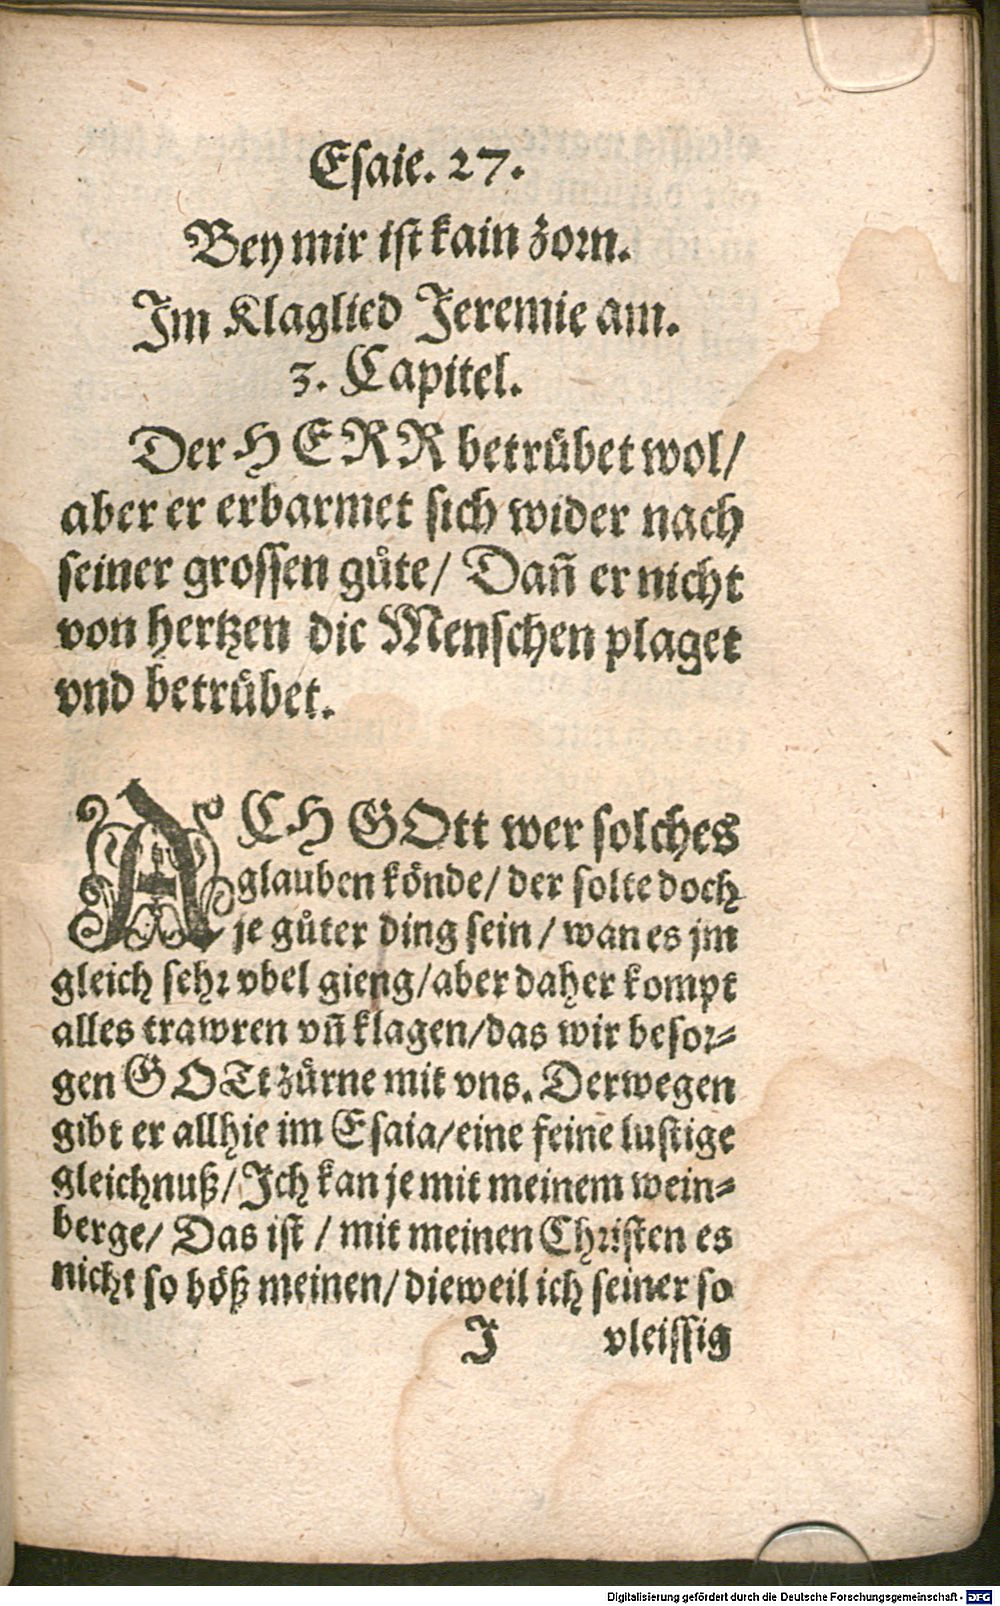 Esaie. 27.
Bey mir ist kain zorn.
Im Klaglied Jeremie am.
3. Capitel.
Der HERR betrübet wol/
aber er erbarmet sich wider nach
seiner grossen gůte/ Dañ er nicht
von hertzen die Menschen plaget
vnd betrübet.
ACH GOtt wer solches
glauben könde/ der solte doch
je gůter ding sein / wan es jm
gleich sehr vbel gieng/aber daher kompt
alles trawren vñ klagen/das wir besor⸗
gen GOTt zürne mit vns. Derwegen
gibt er allhie im Esaia/eine feine lustige
gleichnuß/Ich kan je mit meinem wein⸗
berge/ Das ist / mit meinen Christen es
nicht so böß meinen/ dieweil ich seiner so
J vleissig
Digitalisierung gefördert durch die Deutsche Forschungsgemeinschaft - DFG